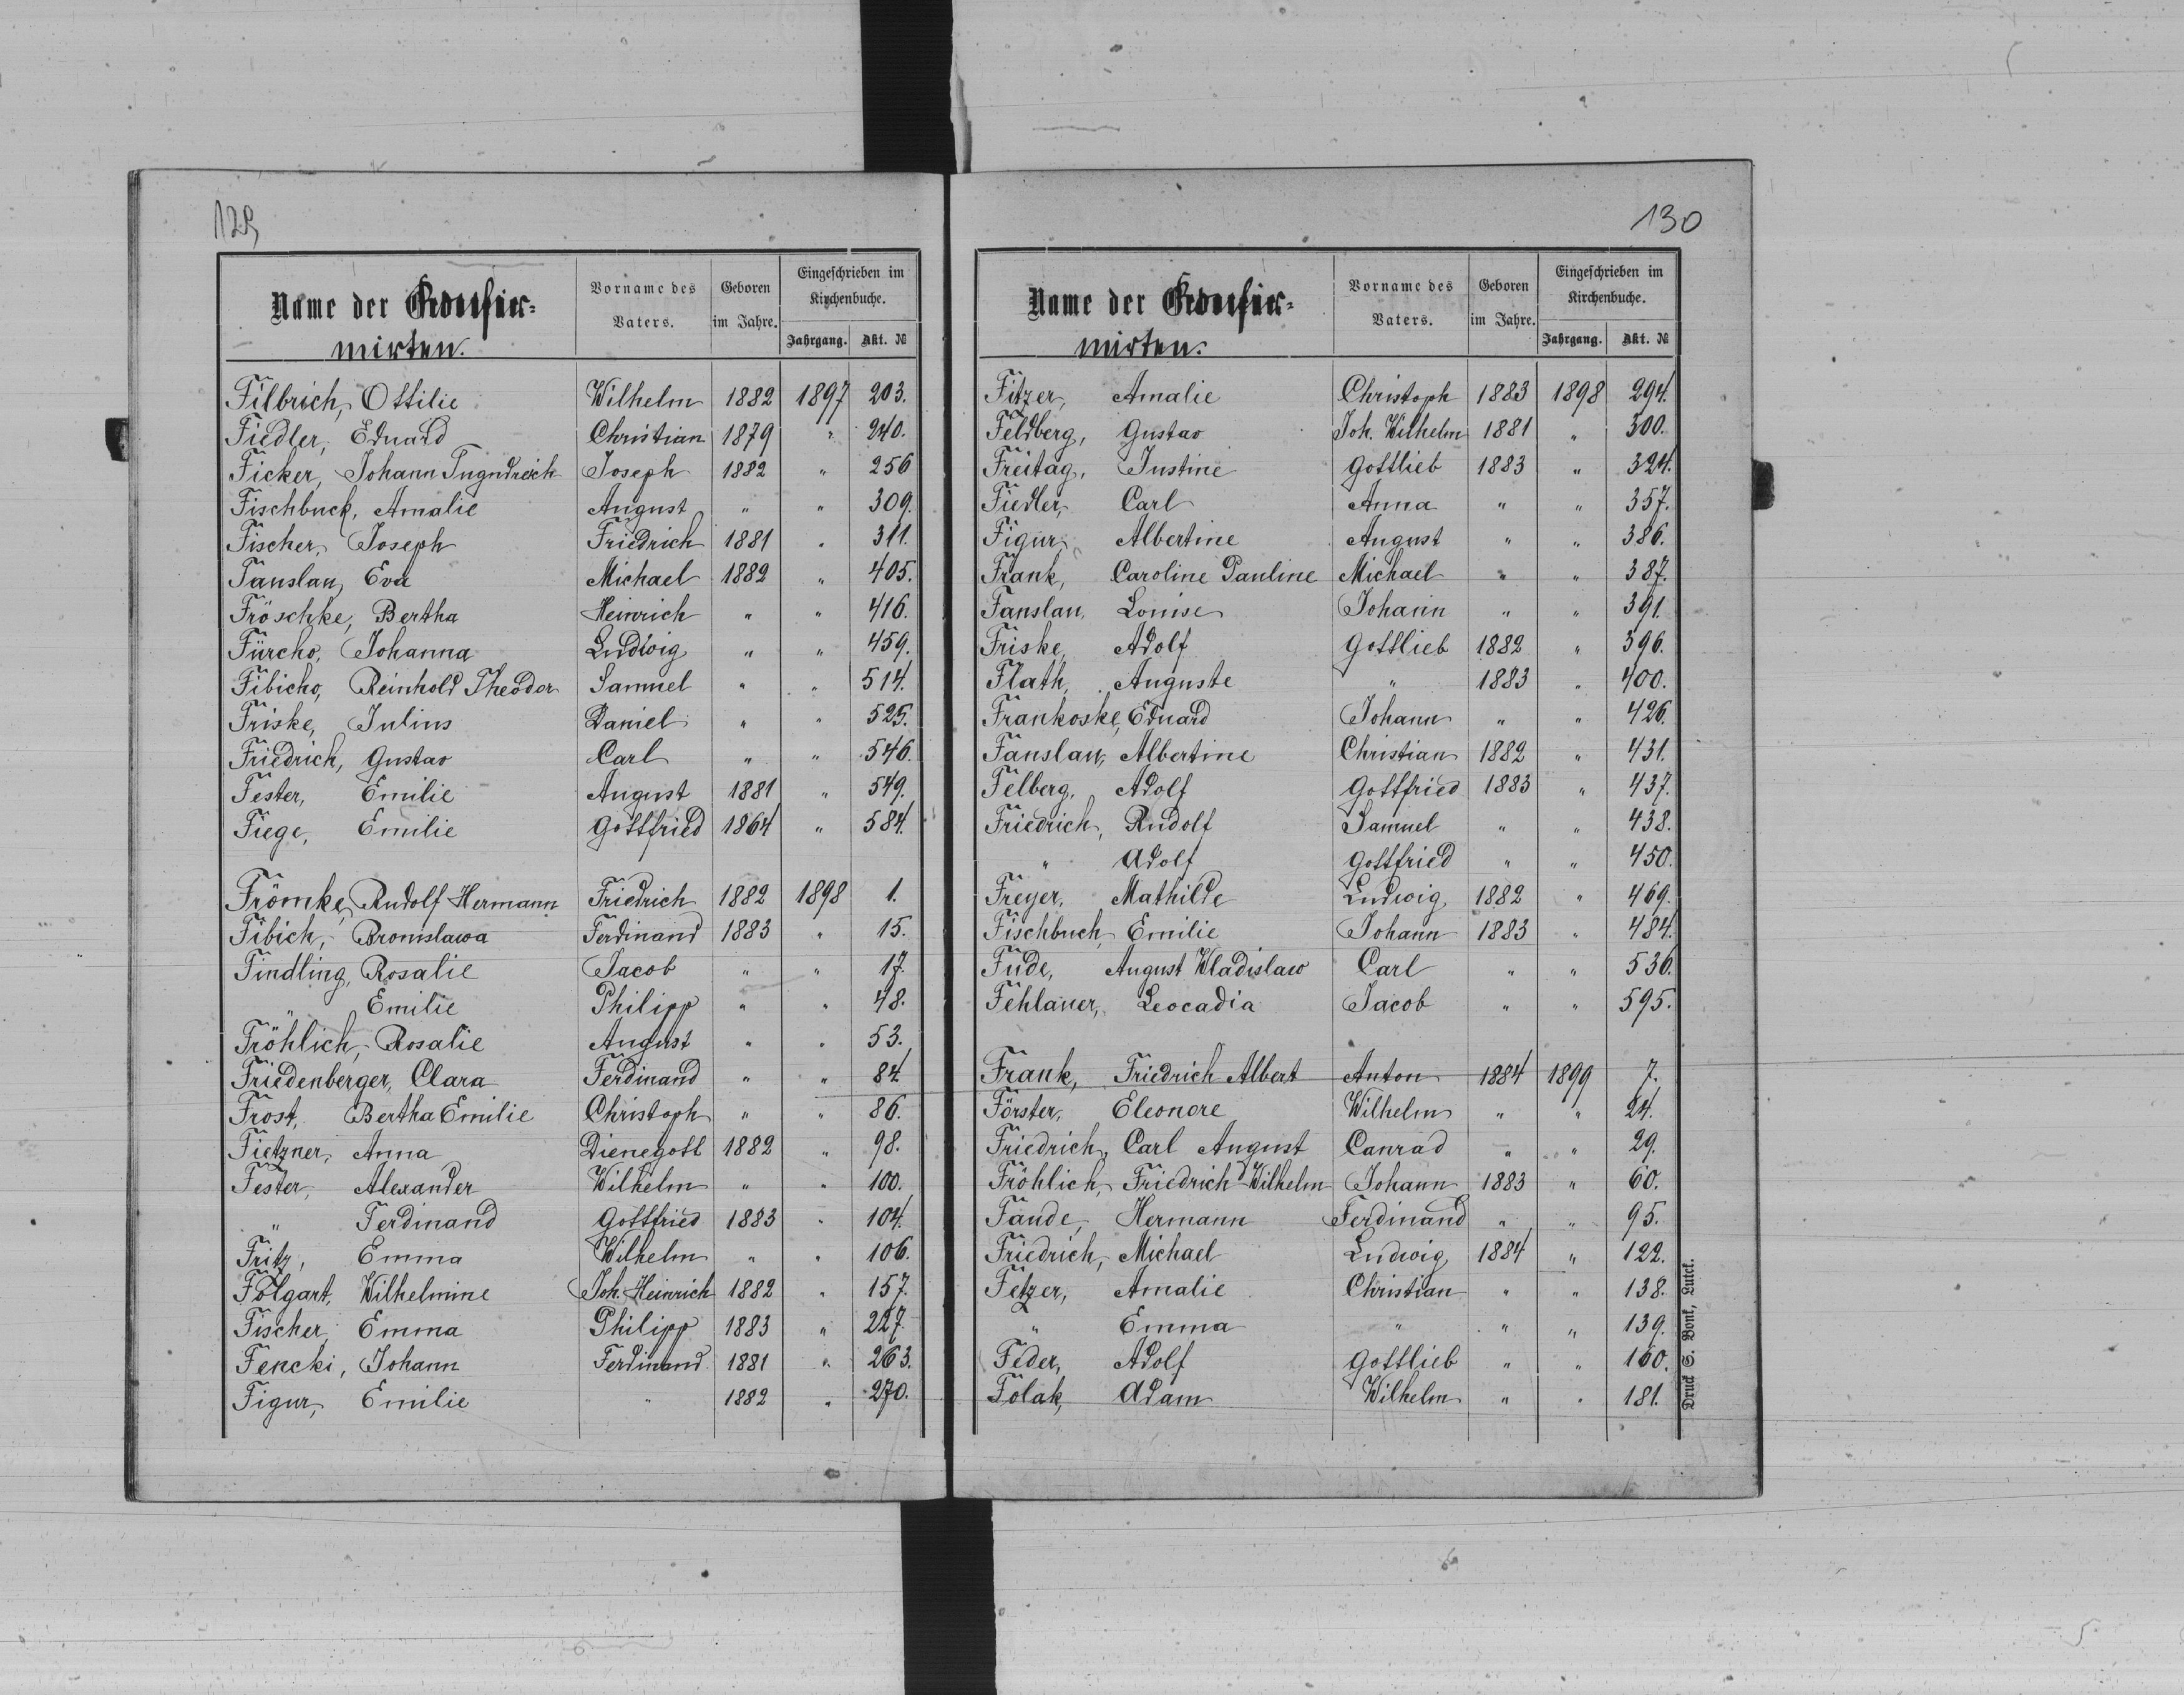 129
Name der Konfir-
mirten.
Vorname des Vaters.
Geboren im Jahre.
Eingeschrieben im Kirchenbuche.
Jahrgang. Akt. №
Filbrich, Ottilie Wilhelm 1882 1897 203.
Fiedler, Eduard Christian 1879 " 240.
Ficker, Johann Tugndreich Joseph 1882 " 256
Fischbuck, Amalie August " " 309.
Fischer, Joseph Friedrich 1881 " 311.
Fanslau, Eva Michael 1882 " 405.
Fröschke, Bertha Heinrich " " 416.
Fürcho, Johanna Ludwig " " 459.
Fibicho, Reinhold Theodor Samuel " " 514.
Friske, Julius Daniel " " 525.
Friedrich, Gustav Carl " " 546.
Fester, Emilie August 1881 " 549.
Fiege, Emilie Gottfried 1864 " 584.
Frömke, Rudolf Hermann Friedrich 1882 1898 1.
Fibich, Bronislawa Ferdinand 1883 " 15.
Findling, Rosalie Jacob " " 17.
" Emilie Philipp " " 48.
Fröhlich, Rosalie August " " 53.
Friedenberger, Clara Ferdinand " " 84
Frost, Bertha Emilie Christoph " " 86.
Fietzner, Anna Dienegott 1882 " 98.
Fester, Alexander Wilhelm " " 100.
" Ferdinand Gottfried 1883 " 104.
Fritz, Emma Wilhelm " " 106.
Folgart, Wilhelmine Joh. Heinrich 1882 " 157.
Fischer, Emma Philipp 1883 " 227.
Fencki, Johann Ferdinand 1881 " 263.
Figur, Emilie " 1882 " 270.
130
Name der Konfir-
mirten.
Vorname des Vaters.
Geboren im Jahre.
Eingeschrieben im Kirchenbuche.
Jahrgang. Akt. №
Fitzer, Amalie Christoph 1883 1898 294.
Feldberg, Gustav Joh. Wilhelm 1881 " 300.
Freitag, Justine Gottlieb 1883 " 324.
Fiedler, Carl Anna " " 357.
Figur, Albertine August " " 386.
Frank, Caroline Pauline Michael " " 387.
Fanslau, Louise Johann " " 391.
Friske, Adolf Gottlieb 1882 " 396.
Flath, Auguste " 1883 " 400.
Frankoske, Eduard Johann " " 426.
Fanslau, Albertine Christian 1882 " 431.
Felberg, Adolf Gottfried 1883 " 437.
Friedrich, Rudolf Samuel " " 438.
" Adolf Gottfried " " 450.
Freyer, Mathilde Ludwig 1882 " 469.
Fischbuch, Emilie Johann 1883 " 484.
Fude, August Wladislaw Carl " " 536.
Fehlauer, Leocadia Jacob " " 595.
Frank, Friedrich Albert Anton 1884 1899 7.
Förster, Eleonore Wilhelm " " 24.
Friedrich, Carl August Canrad " " 29.
Fröhlich, Friedrich Wilhelm Johann 1883 " 60.
Fande, Hermann Ferdinand " " 95.
Friedrich, Michael Ludwig 1884 " 122.
Fetzer, Amalie Christian " " 138.
" Emma " " " 139.
Feder, Adolf Gottlieb " " 160.
Folak, Adam Wilhelm " " 181.
Druck S. Bonk, Lutck.